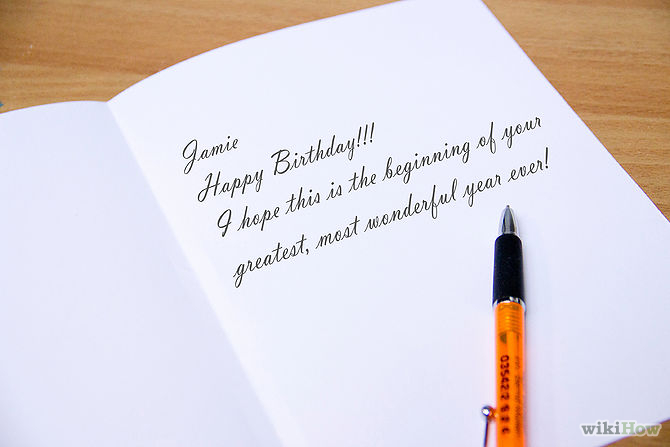 Jamie
Happy Birthday!!!
I hope this is the beginning of your
greatest, most wonderful year ever!
wikiHow